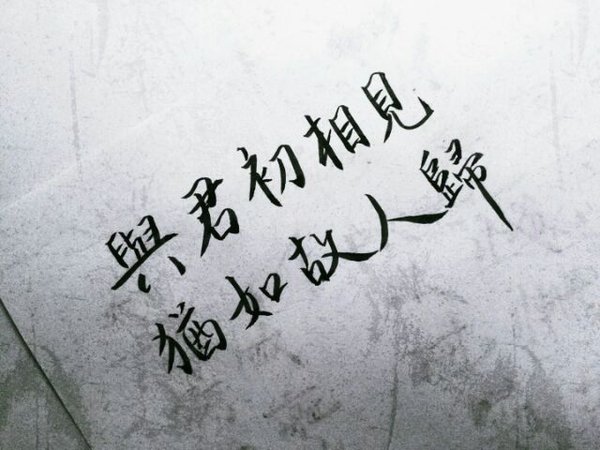 與君初相見
猶如故人歸